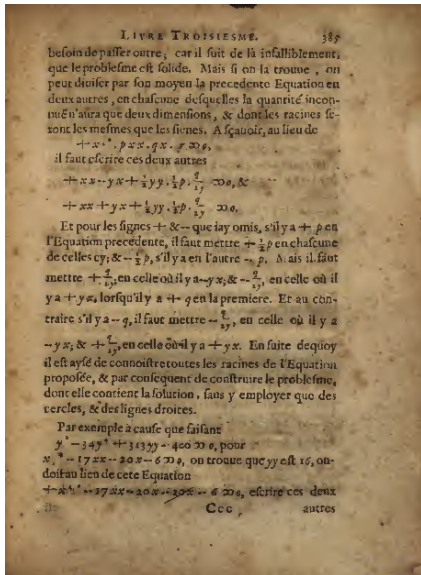 LIVRE TROISIESME. 385
besoin de passer outre, car il suit de là infalliblement,
que le problesme est solide. Mais si on la trouue, on
peut diuiser par son moyen la precedente Equation en
deux autres, en chascune desquelles la quantité incon-
nuë n'aura que deux dimensions, & dont les racines se-
ront les mesmes que les sienes. A sçauoir, au lieu de
+x⁴*.pxx.qx.r ∞ 0,
il faut escrire ces deux autres
+xx--yx+½yy.½p.q/2y ∞ 0, &
+xx+yx+½yy.½p.q/2y ∞ 0.
Et pour les signes + & -- que iay omis, s'il y a + p en
l'Equation precedente, il faut mettre + ½p en chascune
de celles cy; & -- ½p, s'il y a en l'autre -- p. Mais il faut
mettre + q/2y, en celle où il y a -- yx; & -- q/2y, en celle où il
y a + yx, lorsqu'il y a + q en la premiere. Et au con-
traire s'il y a -- q, il faut mettre -- q/2y, en celle où il y a
-- yx; & + q/2y, en celle où il y a + yx. En suite dequoy
il est aysé de connoistre toutes les racines de l'Equation
proposée, & par consequent de construire le problesme,
dont elle contient la solution, sans y employer que des
cercles, & des lignes droites.
Par exemple à cause que faisant
y⁶--34y⁴+313yy--400 ∞ 0, pour
x⁴*--17xx--20x--6 ∞ 0, on trouue que yy est 16, on-
doit au lieu de cete Equation
+x⁴*--17xx--20x--20x--6 ∞ 0, escrire ces deux
Ccc autres